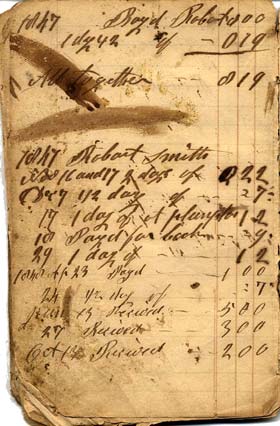 1847 Boyd Robert 800
1 day 42 of 019
All together 819
1847 Robart Smith
16 and 17 2 days of 222
1/2 day of 7
17 1 day of at 12
18 Payd for 9
29 1 day of 12
1848 23 Payd 100
24 1/2 day of 7
13 Received 500
27 Received 300
Oct 12 Received 200